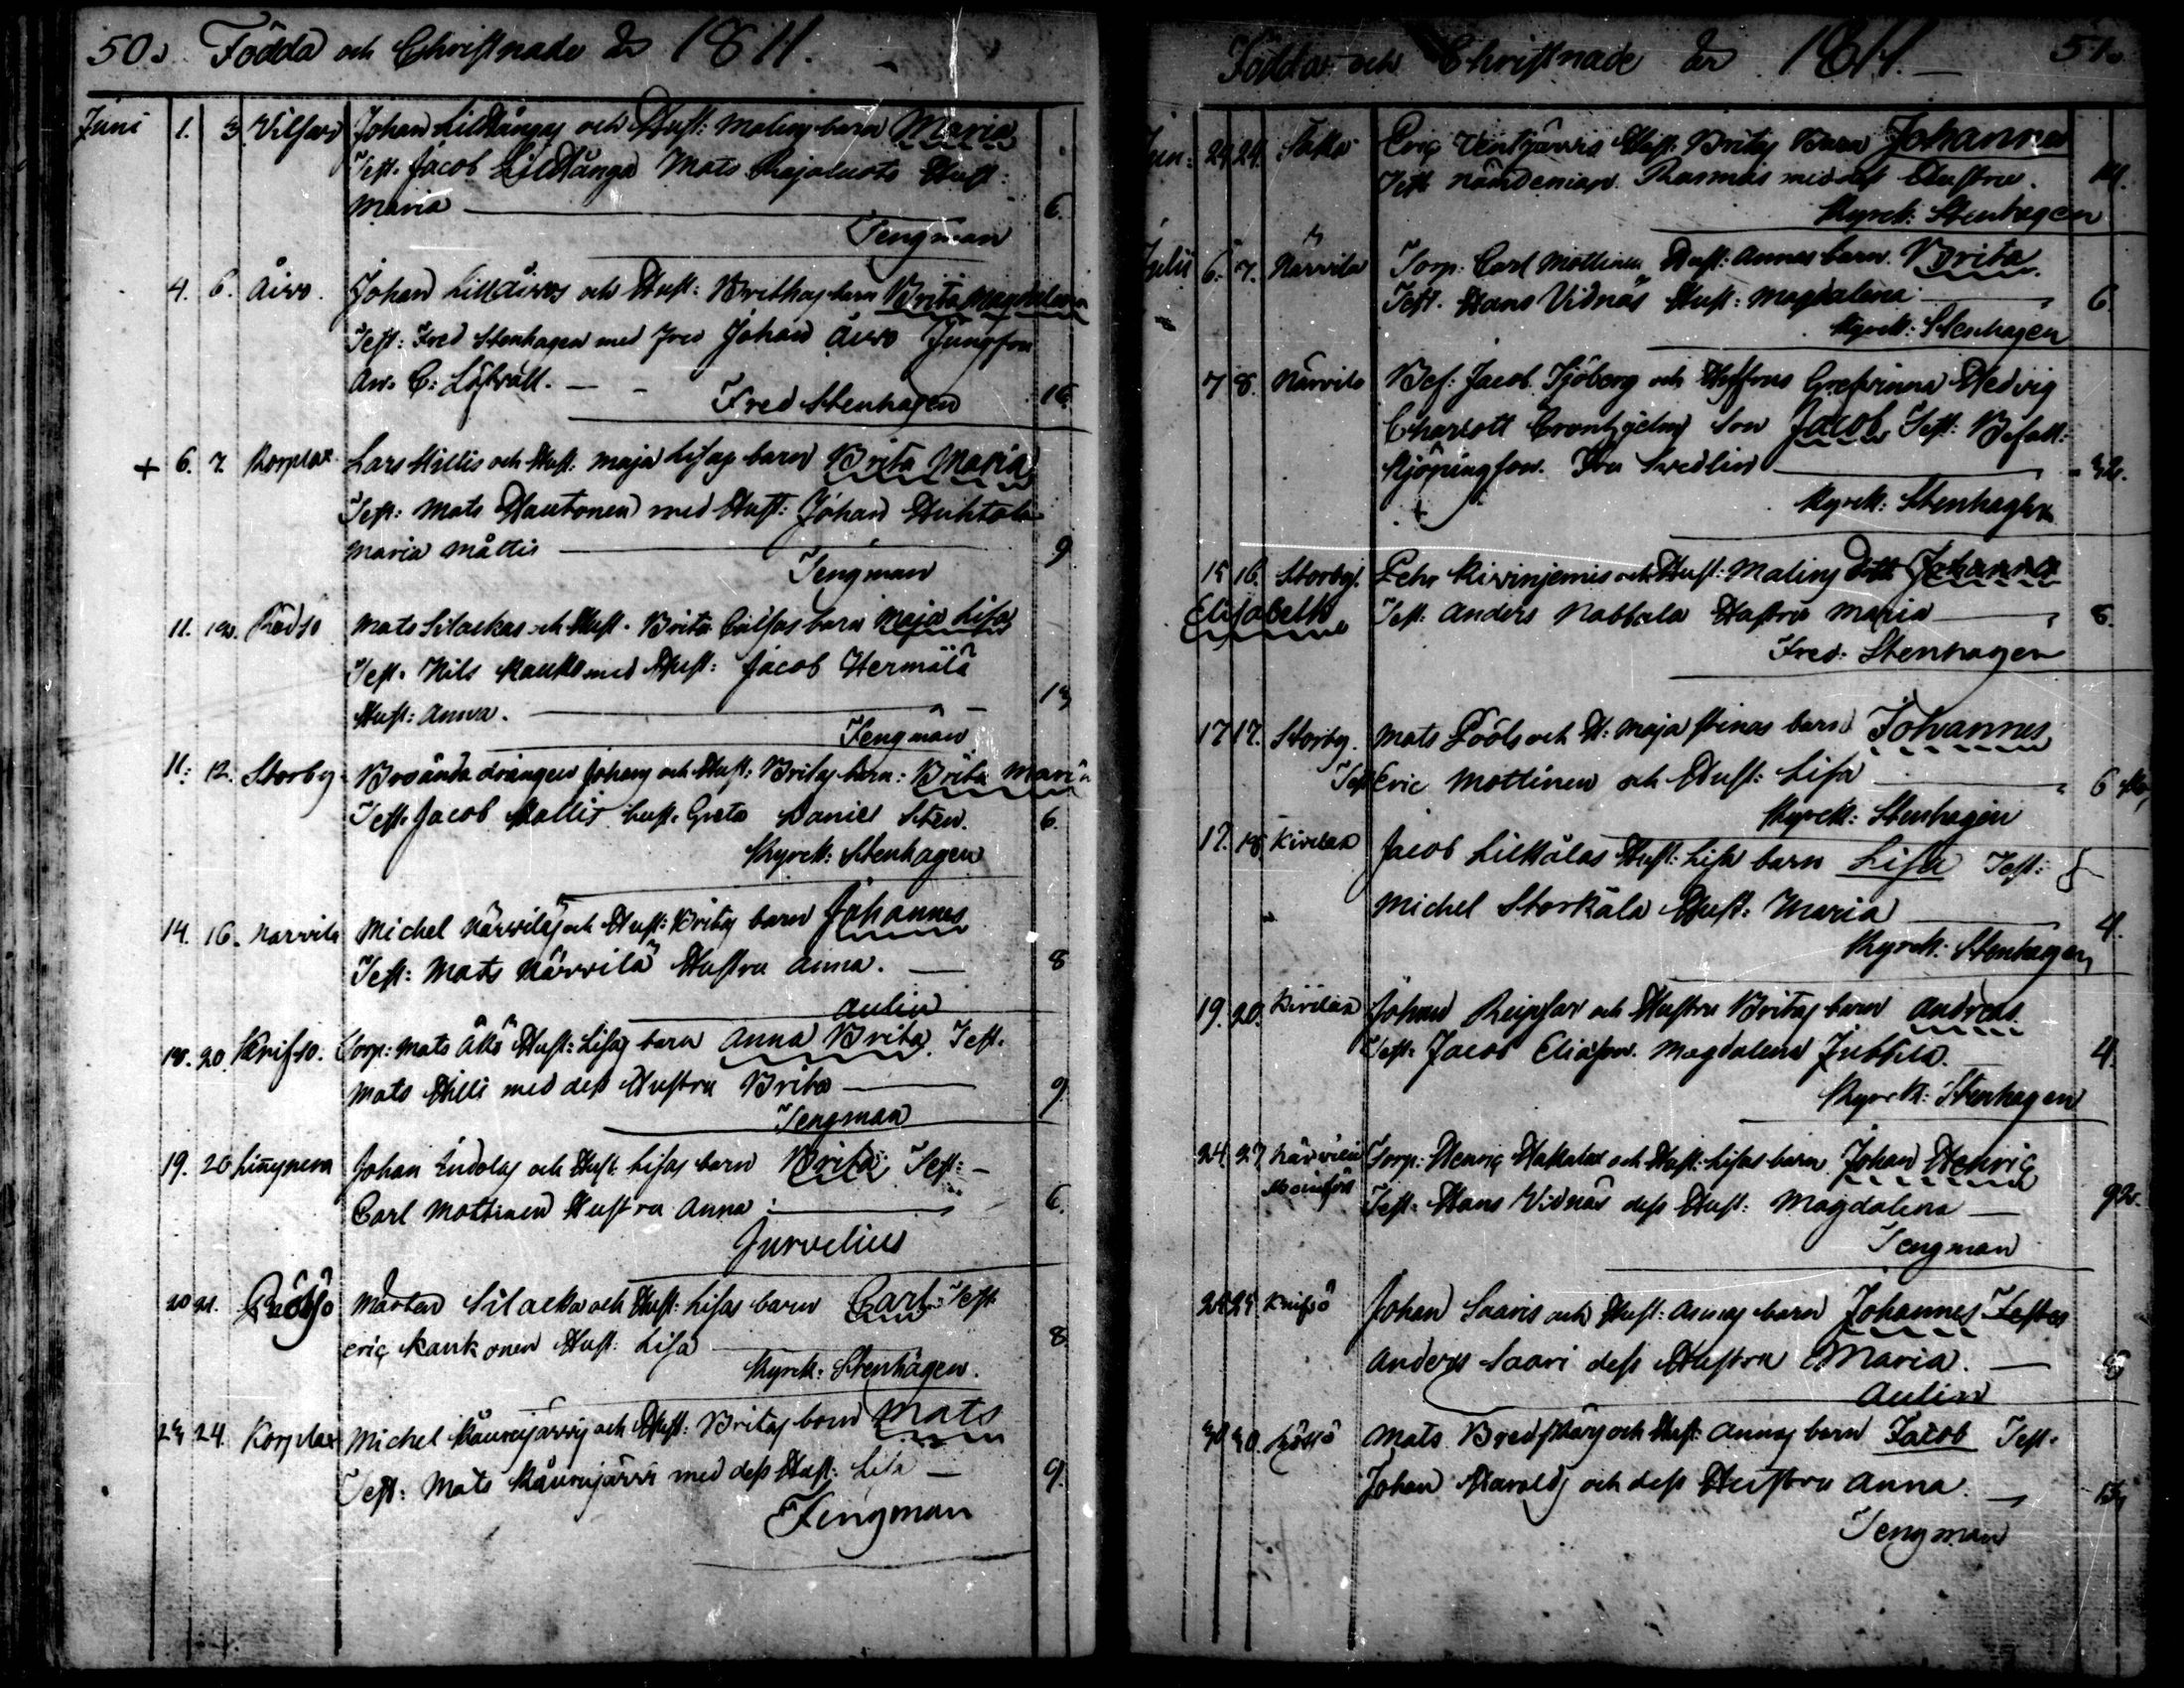 50. Födda och Christnade År 1811.
Juni 1. 3. Vilsar Johan Lillkångas och Hust: Malins barn Maria
Test. Jacob Lillkånga Mats Hust:
Maria 6.
Tengman
4. 6. Åivo. Johan Lillåivos och Hust: Brithas barn Brita Magdalena
Test: Fred Stenhagen med Johan Åivo Jungfru
C: Löfvall. 16.
Fred Stenhagen
+ 6. 7 Korplax Lars Hillis och Hust: Maja Lisas barn Brita Maria
Test: Mats Hautonen med Hust: Johan Huhtala
Maria Mattis 9
Tengman
11. 12. Rödsö Mats Silackas och Hust. Brita barn Maja Lisa
Test. Nils Kauko med Hust: Jacob Hermälä
Hust: Anna. 13
Tengman
11: 12. Storby Broända drängen Johans och Hust: Britas barn: Brita Maria
Test. Jacob Mattis hust. Greta Daniel Sten. 6.
Kyrck: Stenhagen
14. 16. Narvila Michel Närvilas och Hust: Britas barn Johannes
Test: Mats Närvilä Hustru Anna. 8
Aulin
18. 20. Knifsö. Torp: Mats Åkö Hust: Lisas barn Anna Brita. Test.
Mats Hilli med dess Hustru Brita 9
Tengman
19. 20 Linnuperä Johan Indolas och Hust Lisas barn Brita, Test:
Carl Mottinen Hustru Anna 6.
Jurvelius
20 21. Rödsö Mårten Silacka och Hust: Lisas barn Carl Test
Eric Kaukonen Hust: Lisa 8
Kyrck: Stenhagen.
23 24. Korplax Michel Kaunujärvis och Hust: Britas barn Mats
Test: Mats Kaunujärvi med dess Hust: Lisa 9.
Tengman
Födda och Christnade År 1811. 51.
Jun: 24 24. Eric Hust. Britas Barn Johannes
Test Nämdeman Rasmus med dess Hustru. 14.
Kyrck: Stenhagen
Julii 6. 7. Närvilä Torp. Carl Mottinen Hust: Annas barn Brita
Test. Hans Vidnäs Hust: Magdalena 6
Kyrck: Stenhagen
7 8. Närvilä Bef: Jacob Sjöberg och Hustrus Grefvinna Hedvig
Charlott Cronhjelms Son Jacob Test: Befall:
Kjöpingson. Fru Svedlin 32.
Kyrck: Stenhagen
15 16. Storby. Pehr Kivinjemis och Hust: Malins Dott Johanna
Elisabeth Test. Anders Nabbala Hustru Maria 8.
Fred. Stenhagen
17 17. Storby. Mats Pööls och H: Maja Stinas barn Johannes
Test Eric Mottinen och Hust: Lisa 6
Kyrck: Stenhagen
17. 18 Kivilax Jacob Lillkålas Hust: Lisa barn Lisa Test:
Michel Storkåla Hust: Maria 4.
Kyrck: Stenhagen
19. 20. Kivilax Johan Reipsar och Hustru Britas barn Andreas
Test: Jacob Eliäson. Magdalena Jubbila. 4.
Kyrck: Stenhagen
24 27 Närvilä Torp. Henric Hakalax och Hust: Lisas barn Johan Henric
Test. Hans Vidnäs dess Hust: Magdalena
Tengman
24 Knifsö Johan Saaris och Hust: Annas barn Johannes Testes
Anders Saari dess Hustru Maria. 6
Aulin
30 30. Rödsö Mats Bredskärs och Hust: Annas barn Jacob Test.
Johan Haralds och dess Hustru Anna.
Tengman